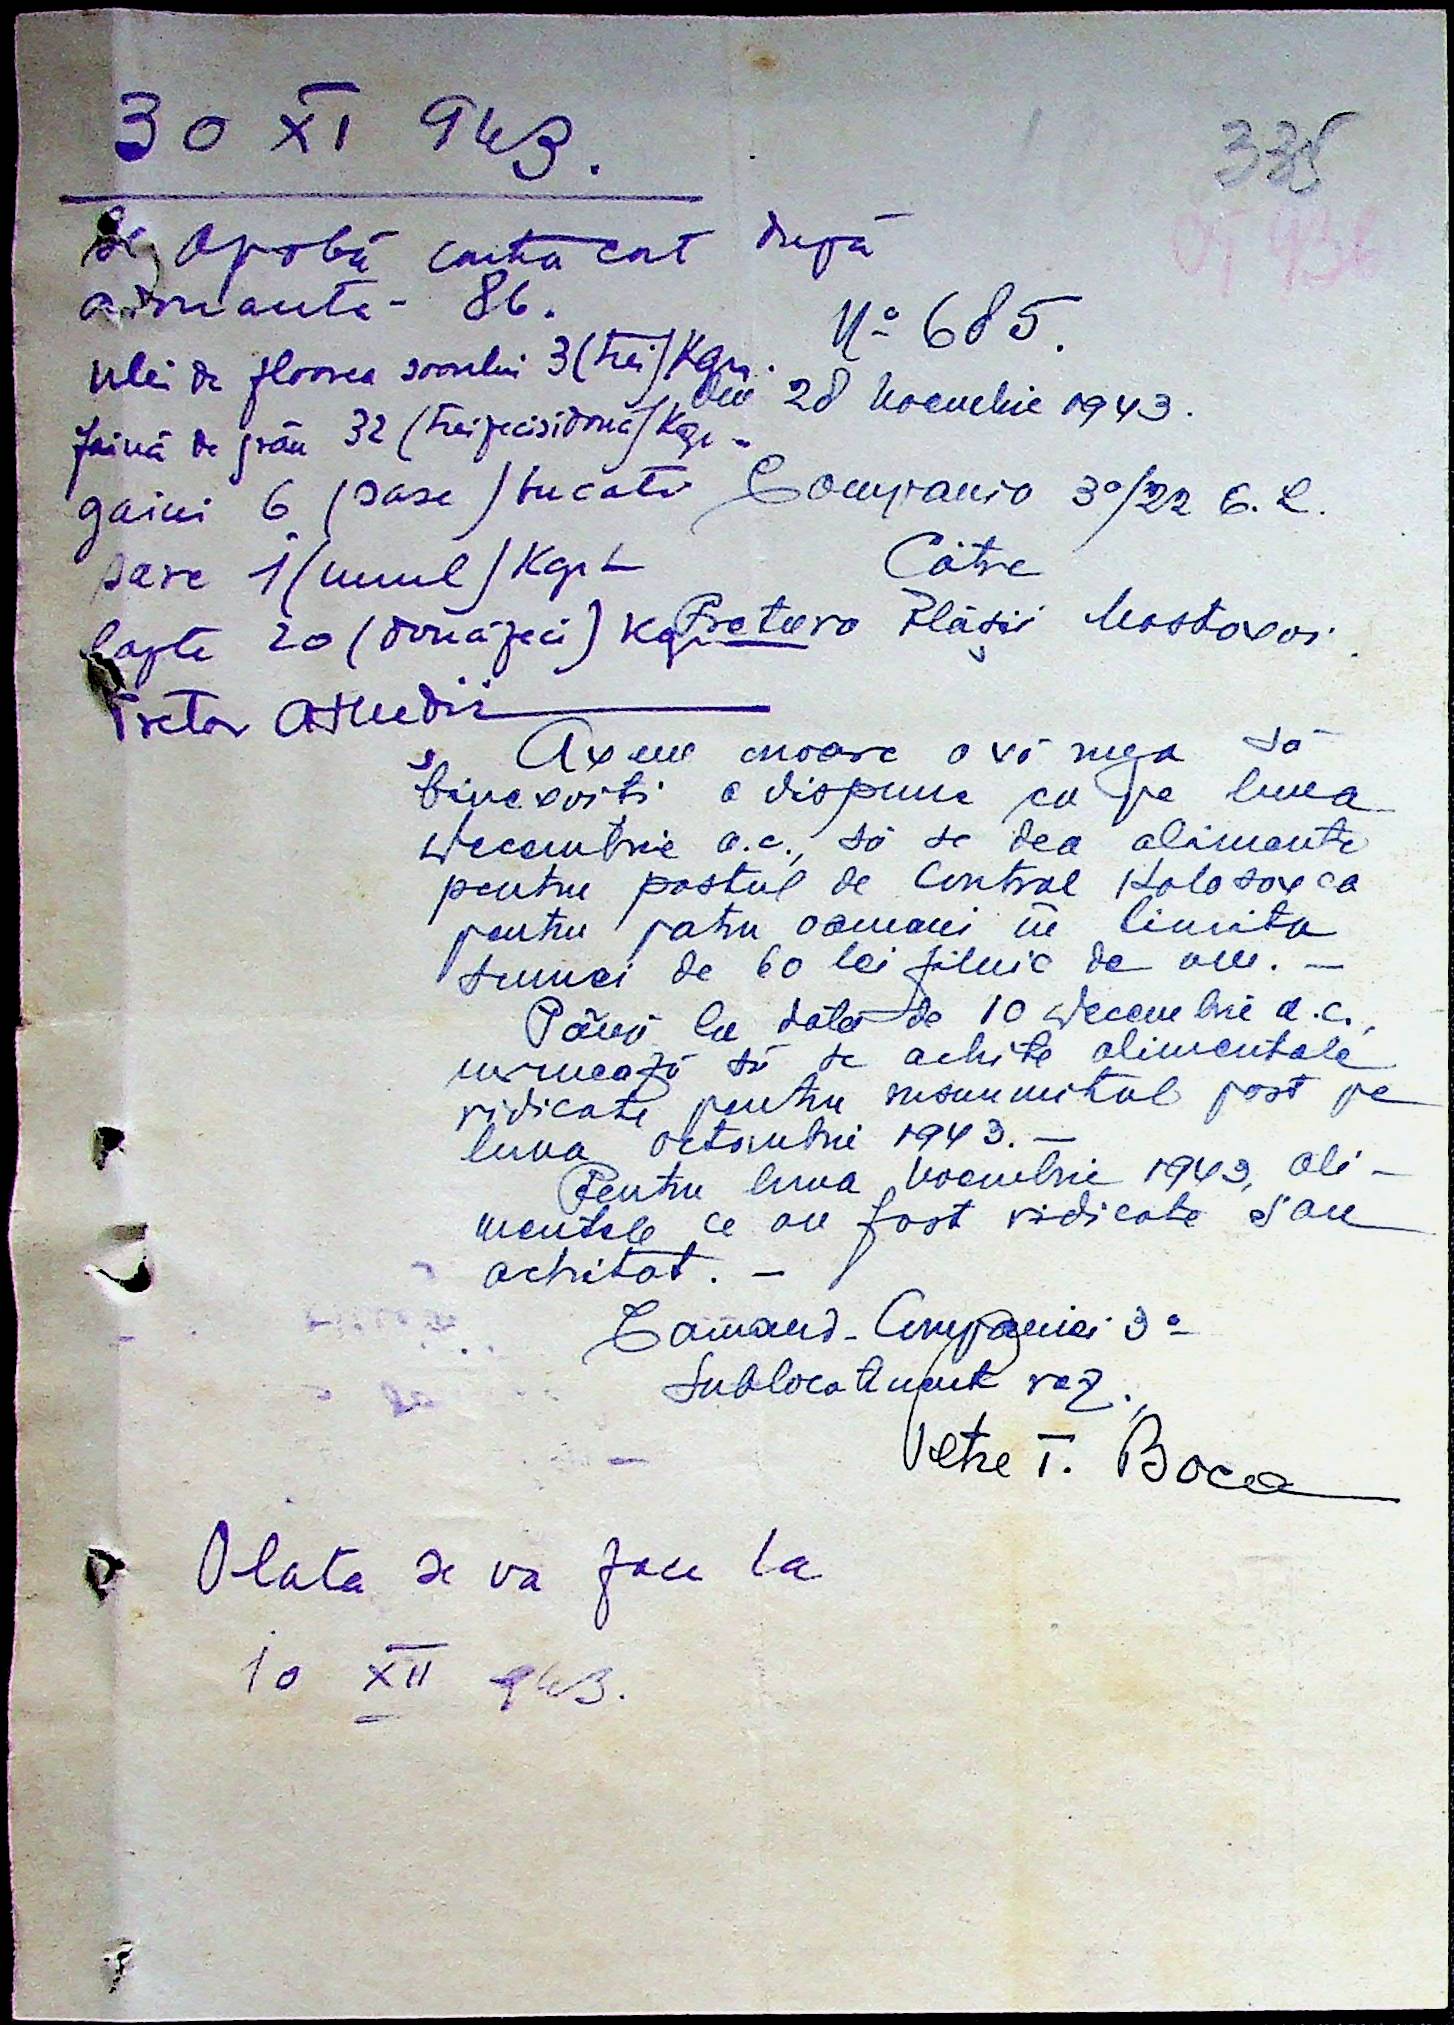 30 XI 943.
335
Se aprobă contra cost după
ordonanta - 86.
ulei de floarea soarelui 3 (trei) Kgr.
faină de grău 32 (treizecisidouă) Kgr -
gaini 6 (sase) bucati
sare 1 (unul) Kgr
lapte 20 (douăzeci) Kgr
Pretor
No 685.
din 28 Noembrie 1943.
Compania 3a/22 E. L.
Către
Pretura Plăsii Mostovoi.
Avem onoare a vă ruga să
binevoiti a dispune ca pe luna
Decembrie a.c., să se dea alimente
pentru postul de Control Kolosovca
pentru patru oameni in limita
sumei de 60 lei zilnic de om. -
Până la data de 10 Decembrie a.c.,
urmează să se achite alimentele
ridicate pentru susnumitul post pe
luna octombrie 1943. -
Pentru luna Noembrie 1943, ali-
mentele ce au fost ridicate s'au
achitat. -
Comand. Companiei 3a
Sublocotenent rez.,
Petre T. Boca
Plata se va face la
10 XII 943.